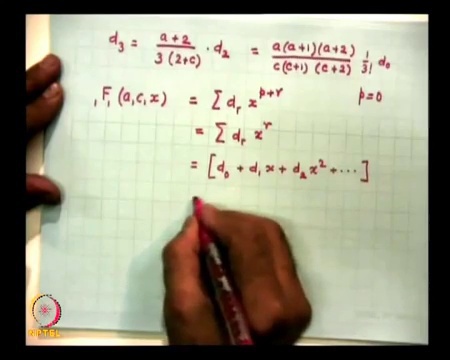 d₃ = (a+2)/(3(2+c)) · d₂ = (a(a+1)(a+2))/(c(c+1)(c+2)) 1/3! d₀
₁F₁(a,c,x) = Σ dᵣ x^(p+r) p=0
= Σ dᵣ x^r
= [d₀ + d₁ x + d₂ x² + ⋯]
NPTEL